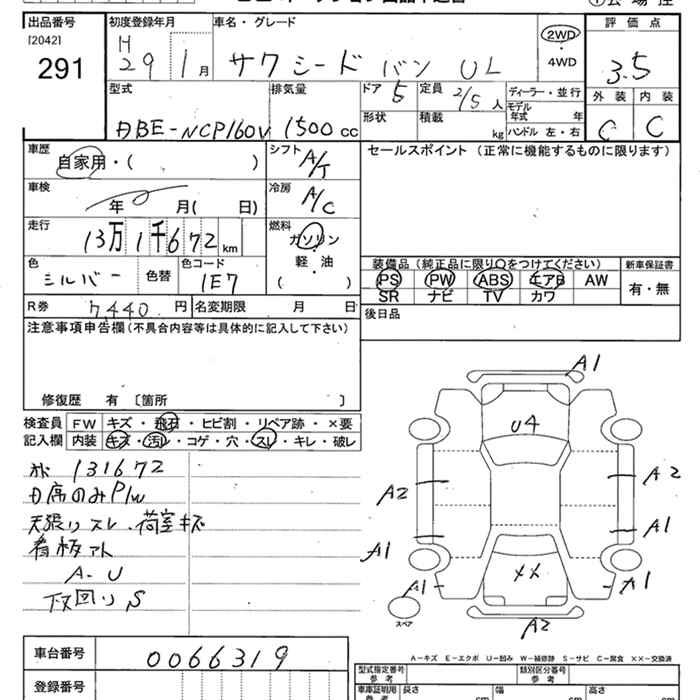 出品番号 初度登録年月 車名・グレード 評価点
[2042]
291
H 29 1月 サクシードバン UL 2WD 4WD 3.5
型式 排気量 ドア 5 定員 2/5人 ディーラー・並行 外装 内装
モデル年式 年
DBE-NCP160V 1500cc 形状 積載 kg ハンドル 左・右 C C
車歴 自家用・( ) シフト A/T セールスポイント (正常に機能するものに限ります)
車検 年 月( 日) 冷房 A/C
走行 13万1千672km 燃料 ガソリン
軽・油
( )
色 シルバー 色替 色コード 1E7
装備品 (純正品に限り○をつけてください) 新車保証書
PS PW ABS エアB AW 有・無
SR ナビ TV カワ
R券 7,440円 名変期限 月 日 後日品
注意事項申告欄(不具合内容等は具体的に記入して下さい)
修復歴 有 〔箇所 〕
検査員 FW キズ・飛石・ヒビ割・リペア跡・×要
記入欄 内装 キズ・汚レ・コゲ・穴・スレ・キレ・破レ
ホ 131672
D席のみP/W
天張リスレ・荷室キズ
看板アト
A-U
下回りS
A1
U4
A2
A2
A1
A1
A1
A1
××
スペア
A2
車台番号 0066319
A-キズ E-エクボ U-凹み W-補修跡 S-サビ C-腐食 ××-交換済
登録番号
型式指定番号 参考 類別区分番号 参考
車庫証明用 参考 長さ cm 幅 cm 高さ cm